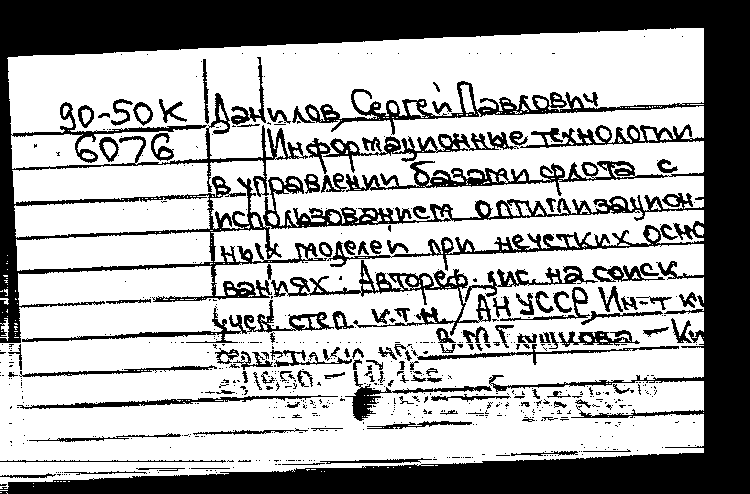 90-50К
6076
Данилов, Сергей Павлович
Информационные технологии
в управлении базами флота с
использованием оптимизацион-
ных моделей при нечетких осно
ваниях : Автореф. дис. на соиск.
учен. степ. к.т.н. / АН УССР, Ин-т ки
бернетики им. В.М. Глушкова. — Ки
в, 1990. — [1], 16 с.